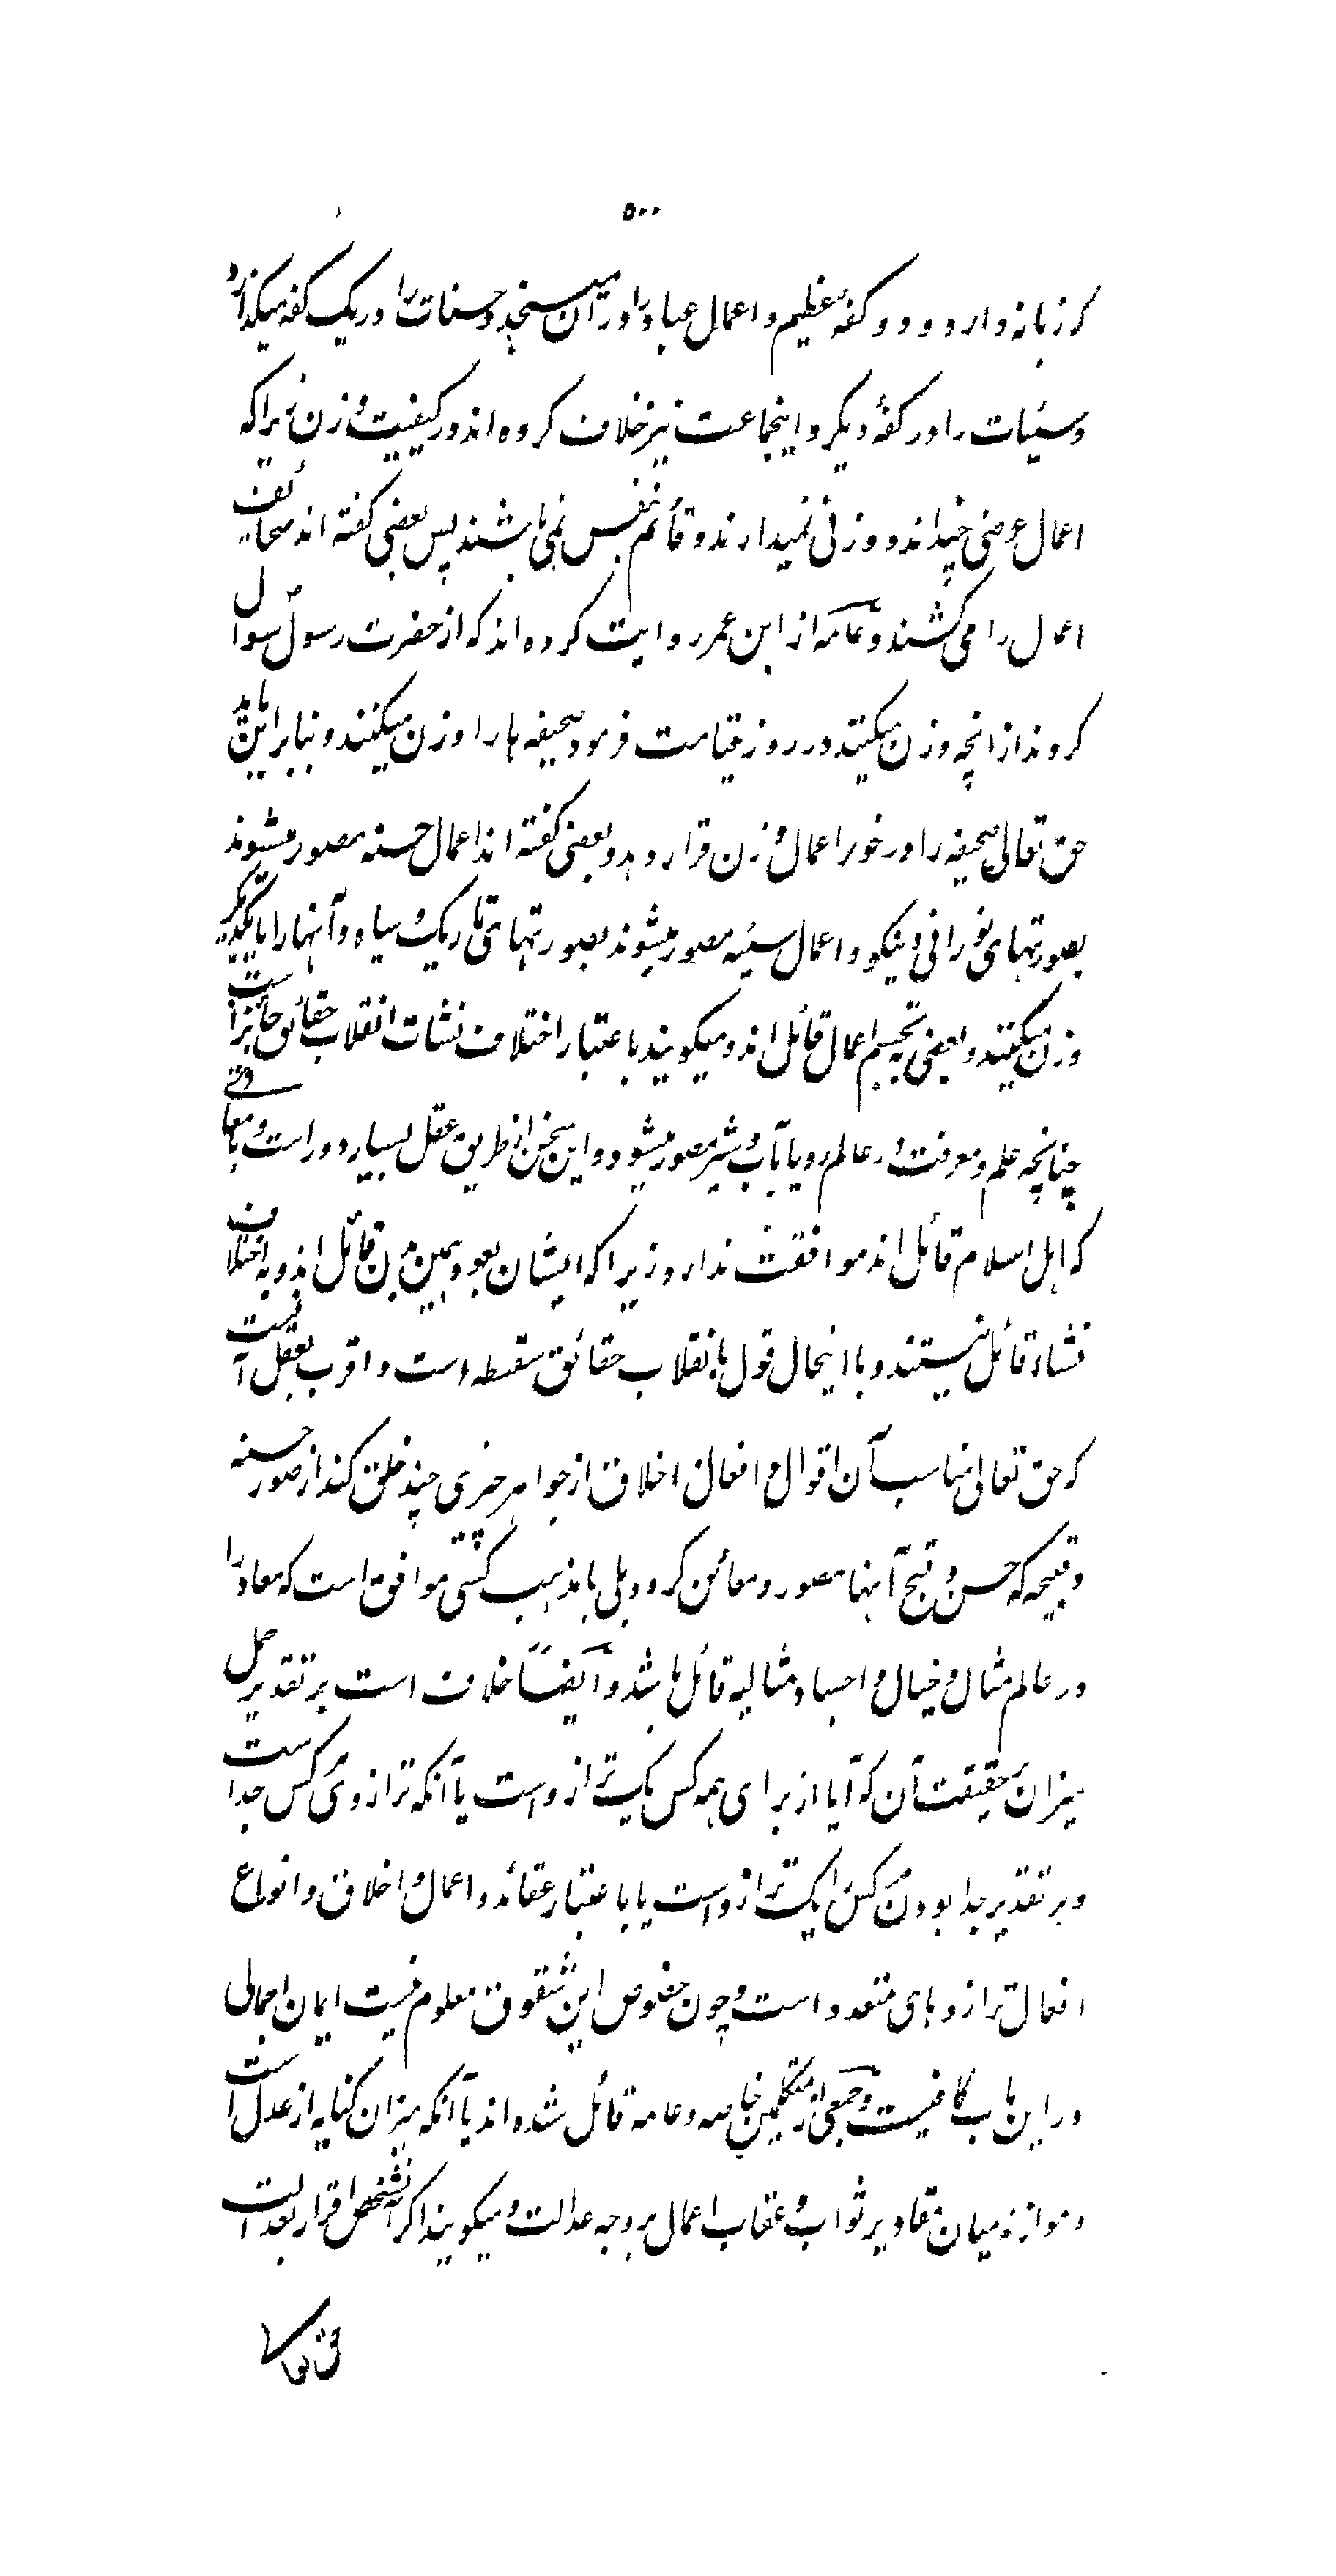 ۵۰۰
که زبانه دارد و دو کفه عظیم و اعمال عباد را در آن میسنجند و حسنات را در یک کفه میگذارد
و سیئات را در کفهٔ دیگر و اینجماعت نیز خلاف کرده اند در کیفیت وزن زیرا که
اعمال عرضی چنداند و وزنی نمیدارند و قائم بنفس نمی باشند پس بعضی گفته اند صحائف
اعمال را می کشند و عامه از ابن عمر روایت کرده اند که از حضرت رسول ص سوال
کردند از انچه وزن میکنند در روز قیامت فرمود صحیفه ها را وزن میکنند و بنابراین باید
حق تعالی صحیفه را در خور اعمال وزن قرار دهد و بعضی گفته اند اعمال حسنه مصور میشوند
بصورتهای نورانی و نیکو و اعمال سیئه مصور میشوند بصورتهای تاریک و سیاه و آنها را با یکدیگر
وزن میکنند و بعضی به تجسیم اعمال قائل اند و میگویند باعتبار اختلاف نشات انقلاب حقائق جائز است
چنانچه علم و معرفت در عالم رویا بآب و شیر مصور میشود و این سخن از طریق عقل بسیار دور است و با معادی
که اهل اسلام قائل اند موافقت ندارد زیرا که ایشان بعود همین بدن قائل اند و به اختلاف
نشاء قائل نیستند و با اینحال قول بانقلاب حقائق سفسطه است و اقرب بعقل آنست
که حق تعالی مناسب آن اقوال و افعال و اخلاق از جواهر چیزی چند خلق کند از صور حسنه
و قبیحه که حسن و قبح آنها مصور و معائن گردد بلی با مذهب کسی موافق است که معاد را
در عالم مثال و خیال و اجساد مثالیه قائل باشد و ایضاً خلاف است بر تقدیر حمل
میزان بر حقیقت آن که آیا از برای همه کس یک ترازو است یا آنکه ترازوی هر کس جداست
و بر تقدیر جدا بودن هر کس را یک ترازو است یا باعتبار عقائد و اعمال و اخلاق و انواع
افعال ترازوهای متعدد است و چون خصوص این شقوق معلوم نیست ایمان اجمالی
در این باب کافیست و جمعی از متکلمین خاصه و عامه قائل شده اند بآنکه میزان کنایه از عدل است
و موازنه میان مقادیر ثواب و عقاب اعمال بر وجه عدالت و میگویند اگر آنشخص اقرار بعدالت
حق تعالی